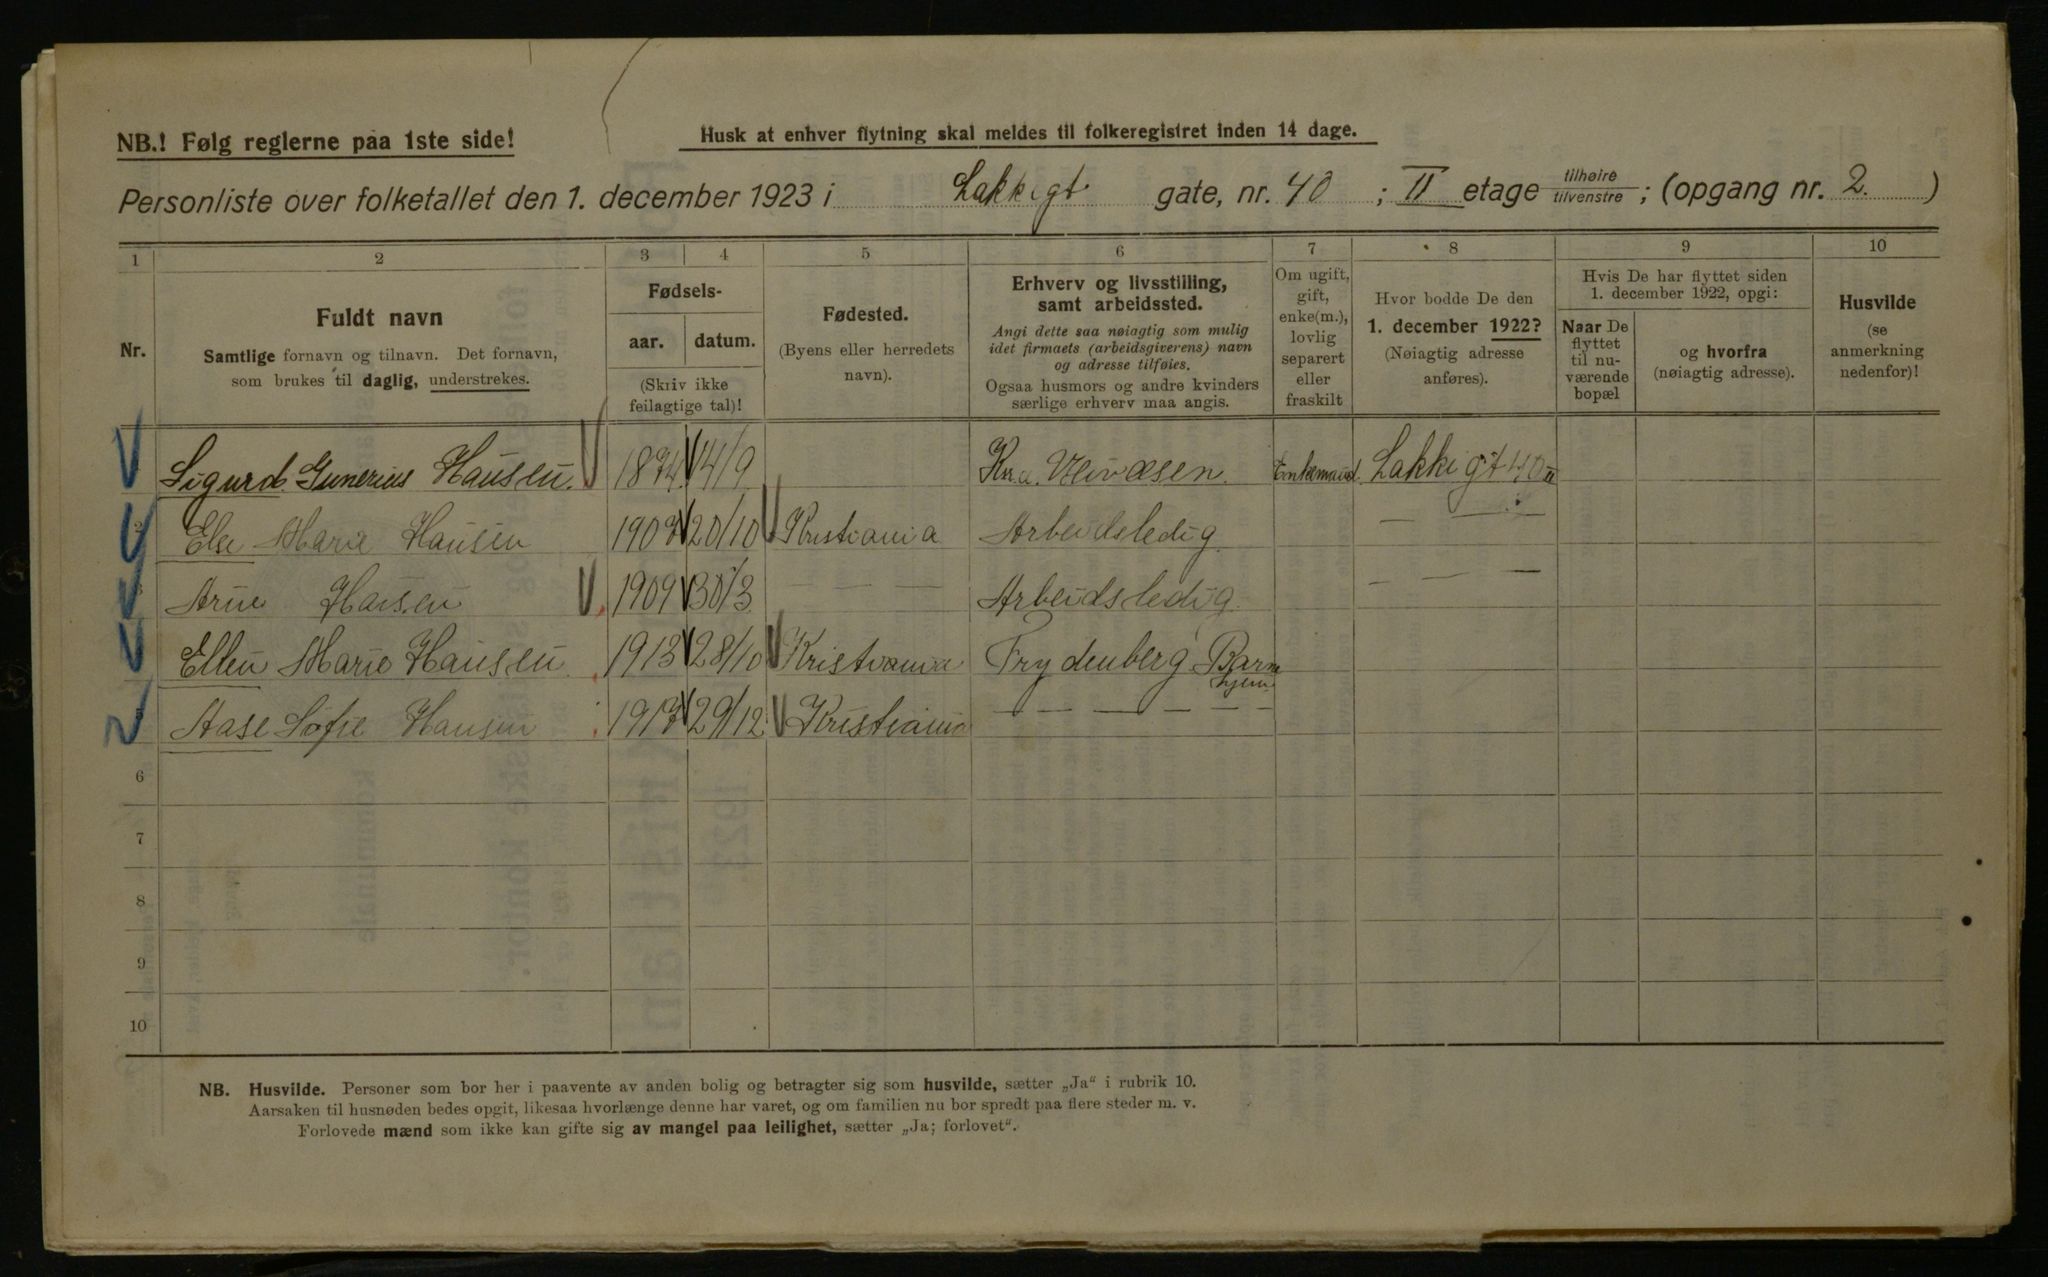 NB.! Følg reglerne paa 1ste side!
Husk at enhver flytning skal meldes til folkeregistret inden 14 dage.
Personliste over folketallet den 1. december 1923 i Lakkigt gate, nr. 40 ; II etage tilhøire tilvenstre ; (opgang nr. 2. )
1 2 3 4 5 6 7 8 9 10
Nr.
Fuldt navn
Samtlige fornavn og tilnavn. Det fornavn,
som brukes til daglig, understrekes.
Fødsels-
aar. datum.
(Skriv ikke
feilagtige tal)!
Fødested.
(Byens eller herredets
navn).
Erhverv og livsstilling,
samt arbeidssted.
Angi dette saa nøiagtig som mulig
idet firmaets (arbeidsgiverens) navn
og adresse tilføies.
Ogsaa husmors og andre kvinders
særlige erhverv maa angis.
Om ugift,
gift,
enke(m.),
lovlig
separert
eller
fraskilt
Hvor bodde De den
1. december 1922?
(Nøiagtig adresse
anføres).
Hvis De har flyttet siden
1. december 1922, opgi:
Naar De
flyttet
til nu-
værende
bopæl
og hvorfra
(nøiagtig adresse).
Husvilde
(se
anmerkning
nedenfor)!
Sigurd Gunerius Hansen. 1874 14/9 Enkemand. Lakkigt 40 II
Else Marie Hansen 1907 20/10 Kristiania Arbeidsledig — —
Arne Hansen 1909 30/3 — — — Arbeidsledig — — —
Ellen Marie Hansen 1913 28/10 Kristiania Frydenberg Barne
hjem
Aase Sofie Hansen 1917 29/12 Kristiania — — — — — —
6
7
8
9
10
NB. Husvilde. Personer som bor her i paavente av anden bolig og betragter sig som husvilde, sætter „Ja“ i rubrik 10.
Aarsaken til husnøden bedes opgit, likesaa hvorlænge denne har varet, og om familien nu bor spredt paa flere steder m. v.
Forlovede mænd som ikke kan gifte sig av mangel paa leilighet, sætter „Ja; forlovet“.